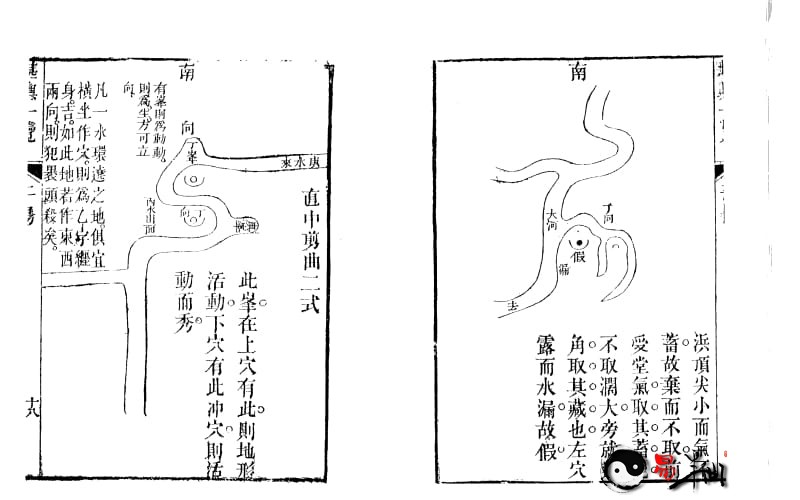 南
大河
丁向
假
漏
去
浜頂尖小而氣
蓄故棄而不取前
受堂氣取其蓄
不取濶大旁就
角取其藏也左穴
露而水漏故假
直中剪曲二式
南
向
丁峯
來水
向
丁
此峯在上穴有此則地形
活動下穴有此冲穴則活
動而秀
有峯則為動動
則為生方可立
向
凡一水環遶之地俱宜
橫坐作穴則為乙字纒
身吉如此地若作東西
兩向則犯褁頭殺矣
輿一覽
十八